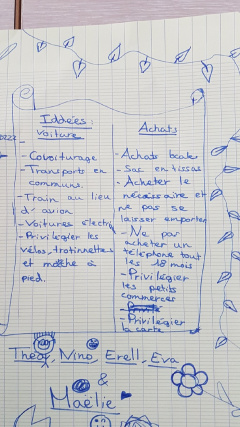 Iddées :
Voiture
- Covoiturage
- Transports en
communs.
- Train au lieu
d'avion
- Voitures électri
- Privilégier les
vélos, trotinnettes
et marche à
pied.
Achats
- Achats
- Sac en tissas
- Acheter le
nécessaire et
ne pas se
laisser emporter
- Ne pas
acheter un
téléphone tout
les 18 mois
- Privilégier
les petits
commerces
- Privilégier
la carte
Théo, Nino, Erell, Eva
&
Maëlie